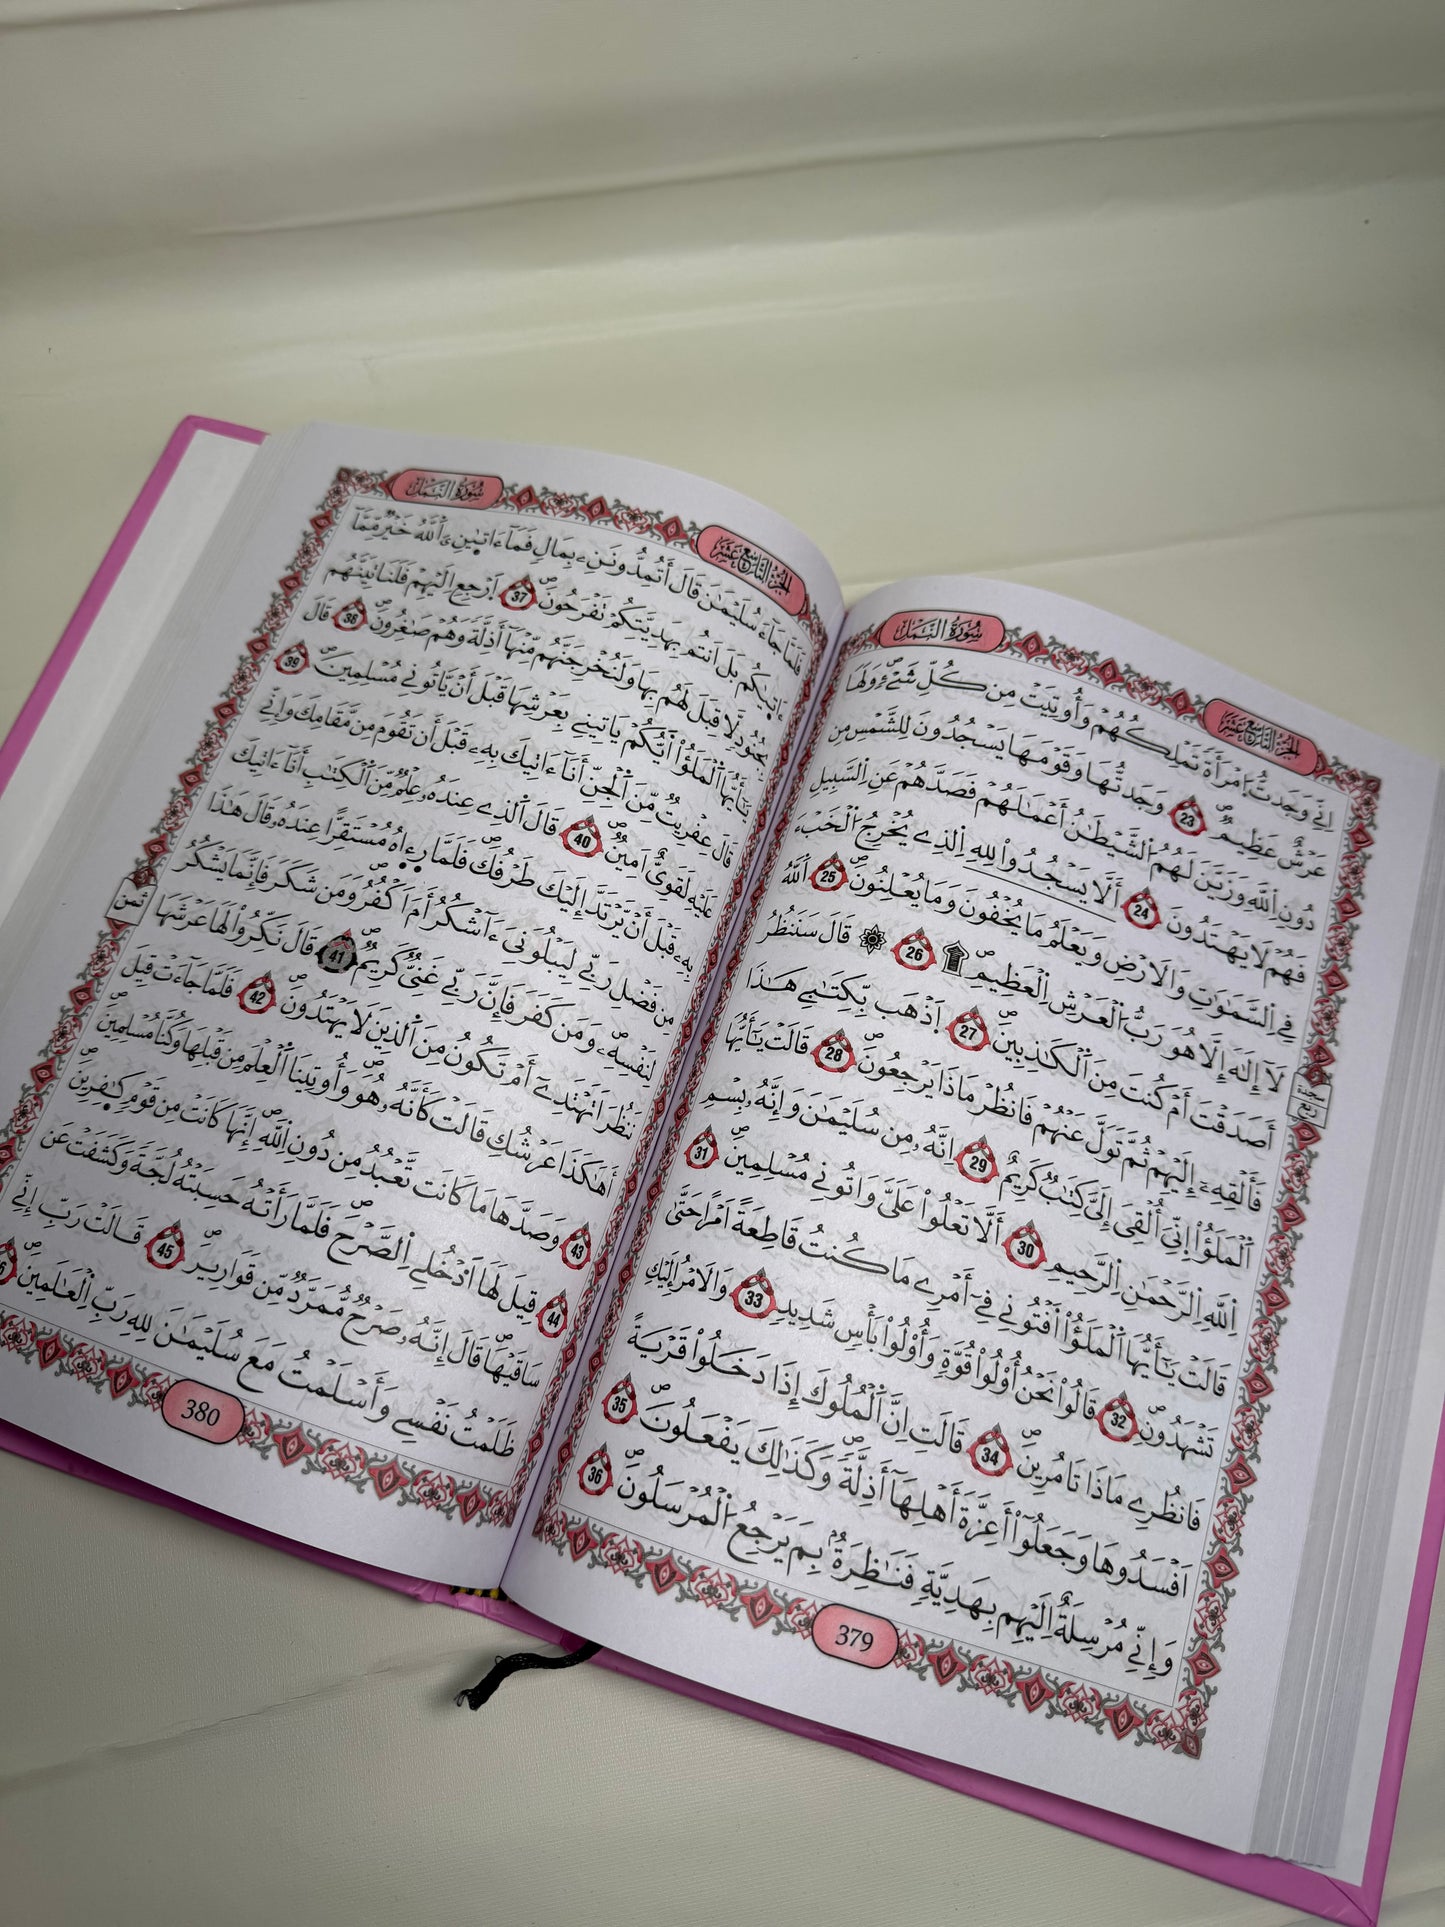 سُورَةُ النَّمْلِ
الجُزْءُ التَّاسِعُ عَشَرَ
إِنِّے وَجَدتُّ اُ۪مْرَأَةٗ تَمْلِكُهُمْ وَأُوتِيَتْ مِن كُلِّ شَےْءٖ وَلَهَا
عَرْشٌ عَظِيمٞ 23 وَجَدتُّهَا وَقَوْمَهَا يَسْجُدُونَ لِلشَّمْسِ مِن
دُونِ اِ۬للَّهِ وَزَيَّنَ لَهُمُ اُ۬لشَّيْطَٰنُ أَعْمَٰلَهُمْ فَصَدَّهُمْ عَنِ اِ۬لسَّبِيلِ
فَهُمْ لَا يَهْتَدُونَ 24 أَلَّا يَسْجُدُواْ لِلهِ اِ۬لذِے يُخْرِجُ اُ۬لْخَبْءَ
فِے اِ۬لسَّمَٰوَٰتِ وَالَارْضِ وَيَعْلَمُ مَا يُخْفُونَ وَمَا يُعْلِنُونَ 25 اَ۬للَّهُ
لَا إِلَٰهَ إِلَّا هُوَ رَبُّ اُ۬لْعَرْشِ اِ۬لْعَظِيمِ ۩ 26 ۞ قَالَ سَنَنظُرُ
أَصَدَقْتَ أَمْ كُنتَ مِنَ اَ۬لْكَٰذِبِينَ 27 اَ۪ذْهَب بِّكِتَٰبِے هَٰذَا
فَأَلْقِهِۦٓ إِلَيْهِمْ ثُمَّ تَوَلَّ عَنْهُمْ فَانظُرْ مَاذَا يَرْجِعُونَ 28 قَالَتْ يَٰٓأَيُّهَا
اَ۬لْمَلَؤُاْ اِنِّيَ أُلْقِيَ إِلَيَّ كِتَٰبٞ كَرِيمٌ 29 اِنَّهُۥ مِن سُلَيْمَٰنَ وَإِنَّهُۥ بِسْمِ
اِ۬للَّهِ اِ۬لرَّحْمَٰنِ اِ۬لرَّحِيمِ 30 أَلَّا تَعْلُواْ عَلَيَّ وَاتُونِے مُسْلِمِينَ 31
قَالَتْ يَٰٓأَيُّهَا اَ۬لْمَلَؤُاْ اَفْتُونِے فِےٓ أَمْرِے مَا كُنتُ قَاطِعَةً اَمْراً حَتَّىٰ
تَشْهَدُونِ 32 قَالُواْ نَحْنُ أُوْلُواْ قُوَّةٖ وَأُوْلُواْ بَأْسٖ شَدِيدٖ 33 وَالَامْرُ إِلَيْكِ
فَانظُرِے مَاذَا تَامُرِينَ 34 قَالَتِ اِنَّ اَ۬لْمُلُوكَ إِذَا دَخَلُواْ قَرْيَةً
اَفْسَدُوهَا وَجَعَلُوٓاْ أَعِزَّةَ أَهْلِهَآ أَذِلَّةٗ وَكَذَٰلِكَ يَفْعَلُونَ 35
وَإِنِّے مُرْسِلَةٌ اِلَيْهِم بِهَدِيَّةٖ فَنَاظِرَةُۢ بِمَ يَرْجِعُ اُ۬لْمُرْسَلُونَ 36
سجدة
ربع
379
سُورَةُ النَّمْلِ
الجُزْءُ التَّاسِعُ عَشَرَ
فَلَمَّا جَآءَ سُلَيْمَٰنَ قَالَ أَتُمِدُّونَنِۦ بِمَالٖ فَمَآ ءَاتَيٰنِۦَ اَ۬للَّهُ خَيْرٞ مِّمَّآ
ءَاتَيٰكُم بَلَ اَنتُم بِهَدِيَّتِكُمْ تَفْرَحُونَ 37 اَ۪رْجِعِ اِلَيْهِمْ فَلَنَاتِيَنَّهُم
بِجُنُودٖ لَّا قِبَلَ لَهُم بِهَا وَلَنُخْرِجَنَّهُم مِّنْهَآ أَذِلَّةٗ وَهُمْ صَٰغِرُونَ 38 قَالَ
يَٰٓأَيُّهَا اَ۬لْمَلَؤُاْ اَيُّكُمْ يَاتِينِے بِعَرْشِهَا قَبْلَ أَنْ يَّاتُونِے مُسْلِمِينَ 39
قَالَ عِفْرِيتٞ مِّنَ اَ۬لْجِنِّ أَنَآ ءَاتِيكَ بِهِۦ قَبْلَ أَن تَقُومَ مِن مَّقَامِكَ وَإِنِّے
عَلَيْهِ لَقَوِيٌّ اَمِينٞ 40 قَالَ اَ۬لذِے عِندَهُۥ عِلْمٞ مِّنَ اَ۬لْكِتَٰبِ أَنَآ ءَاتِيكَ
بِهِۦ قَبْلَ أَنْ يَّرْتَدَّ إِلَيْكَ طَرْفُكَ فَلَمَّا رِءَاهُ مُسْتَقِرّاً عِندَهُۥ قَالَ هَٰذَا
مِن فَضْلِ رَبِّے لِيَبْلُوَنِيَ ءَآشْكُرُ أَمَ اَكْفُرُ وَمَن شَكَرَ فَإِنَّمَا يَشْكُرُ
لِنَفْسِهِۦ وَمَن كَفَرَ فَإِنَّ رَبِّے غَنِيّٞ كَرِيمٞ 41 قَالَ نَكِّرُواْ لَهَا عَرْشَهَا
نَنظُرَ اَتَهْتَدِےٓ أَمْ تَكُونُ مِنَ اَ۬لذِينَ لَا يَهْتَدُونَ 42 فَلَمَّا جَآءَتْ قِيلَ
أَهَٰكَذَا عَرْشُكِ قَالَتْ كَأَنَّهُۥ هُوَ وَأُوتِينَا اَ۬لْعِلْمَ مِن قَبْلِهَا وَكُنَّا مُسْلِمِينَ
43 وَصَدَّهَا مَا كَانَت تَّعْبُدُ مِن دُونِ اِ۬للَّهِ إِنَّهَا كَانَتْ مِن قَوْمٖ كٰ۪فِرِينَ
44 قِيلَ لَهَا اَ۟دْخُلِے اِ۬لصَّرْحَ فَلَمَّا رَأَتْهُ حَسِبَتْهُ لُجَّةٗ وَكَشَفَتْ عَن
سَاقَيْهَا قَالَ إِنَّهُۥ صَرْحٞ مُّمَرَّدٞ مِّن قَوَارِيرَ 45 قَالَتْ رَبِّ إِنِّے
ظَلَمْتُ نَفْسِے وَأَسْلَمْتُ مَعَ سُلَيْمَٰنَ لِلهِ رَبِّ اِ۬لْعَٰلَمِينَ 46
ثمن
380